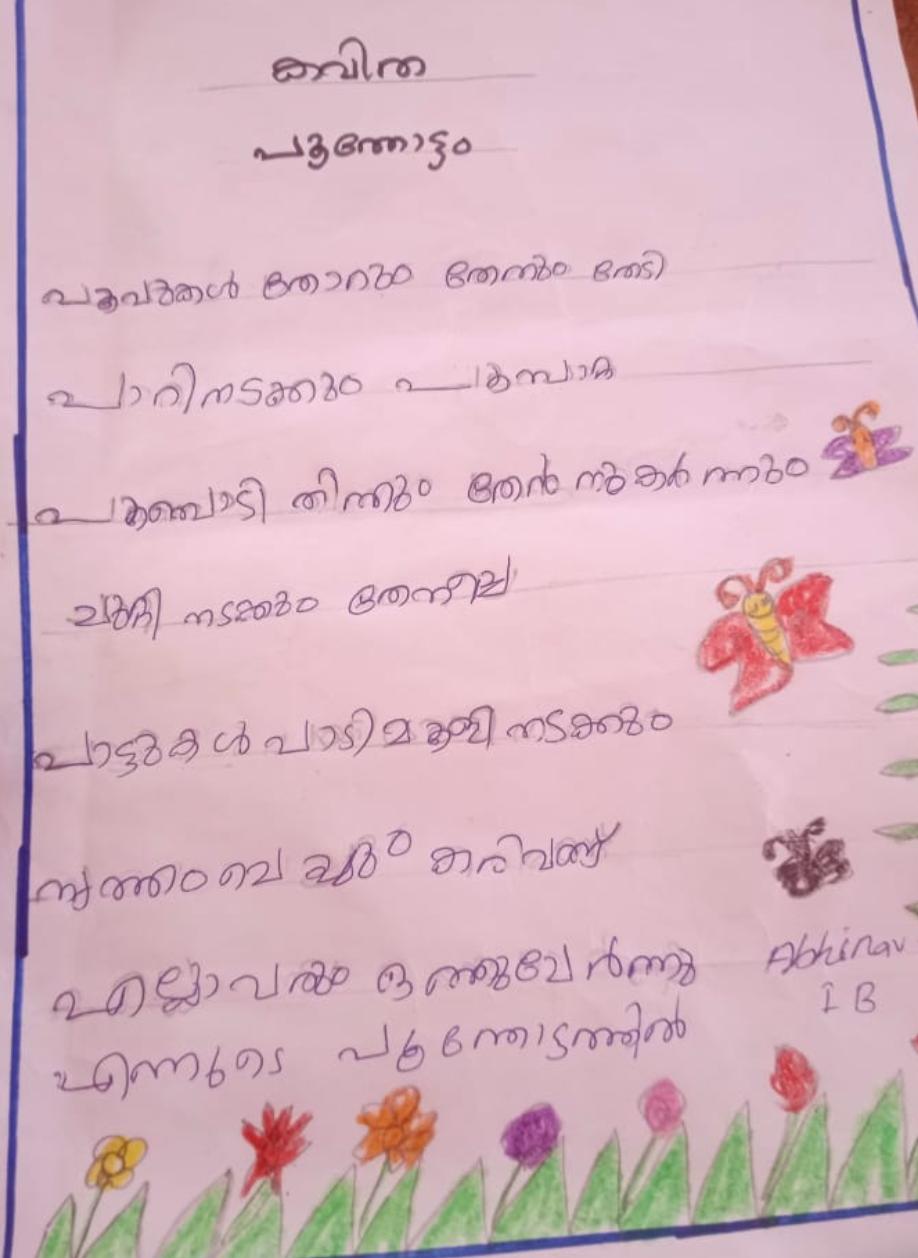 കവിത
പൂന്തോട്ടം
പൂവുകൾ തോറും തേനും തേടി
പാറിനടക്കും പൂമ്പാറ്റ
പൂമ്പൊടി തിന്നും തേൻ നുകർന്നും
ചുറ്റി നടക്കും തേനീച്ച
പാട്ടുകൾ പാടി മൂളി നടക്കും
നൃത്തം ചെയ്യും കരിവണ്ട്
എല്ലാവരും ഒത്തുചേർന്നു
Abhinav
എന്നുടെ പൂന്തോട്ടത്തിൽ
I B